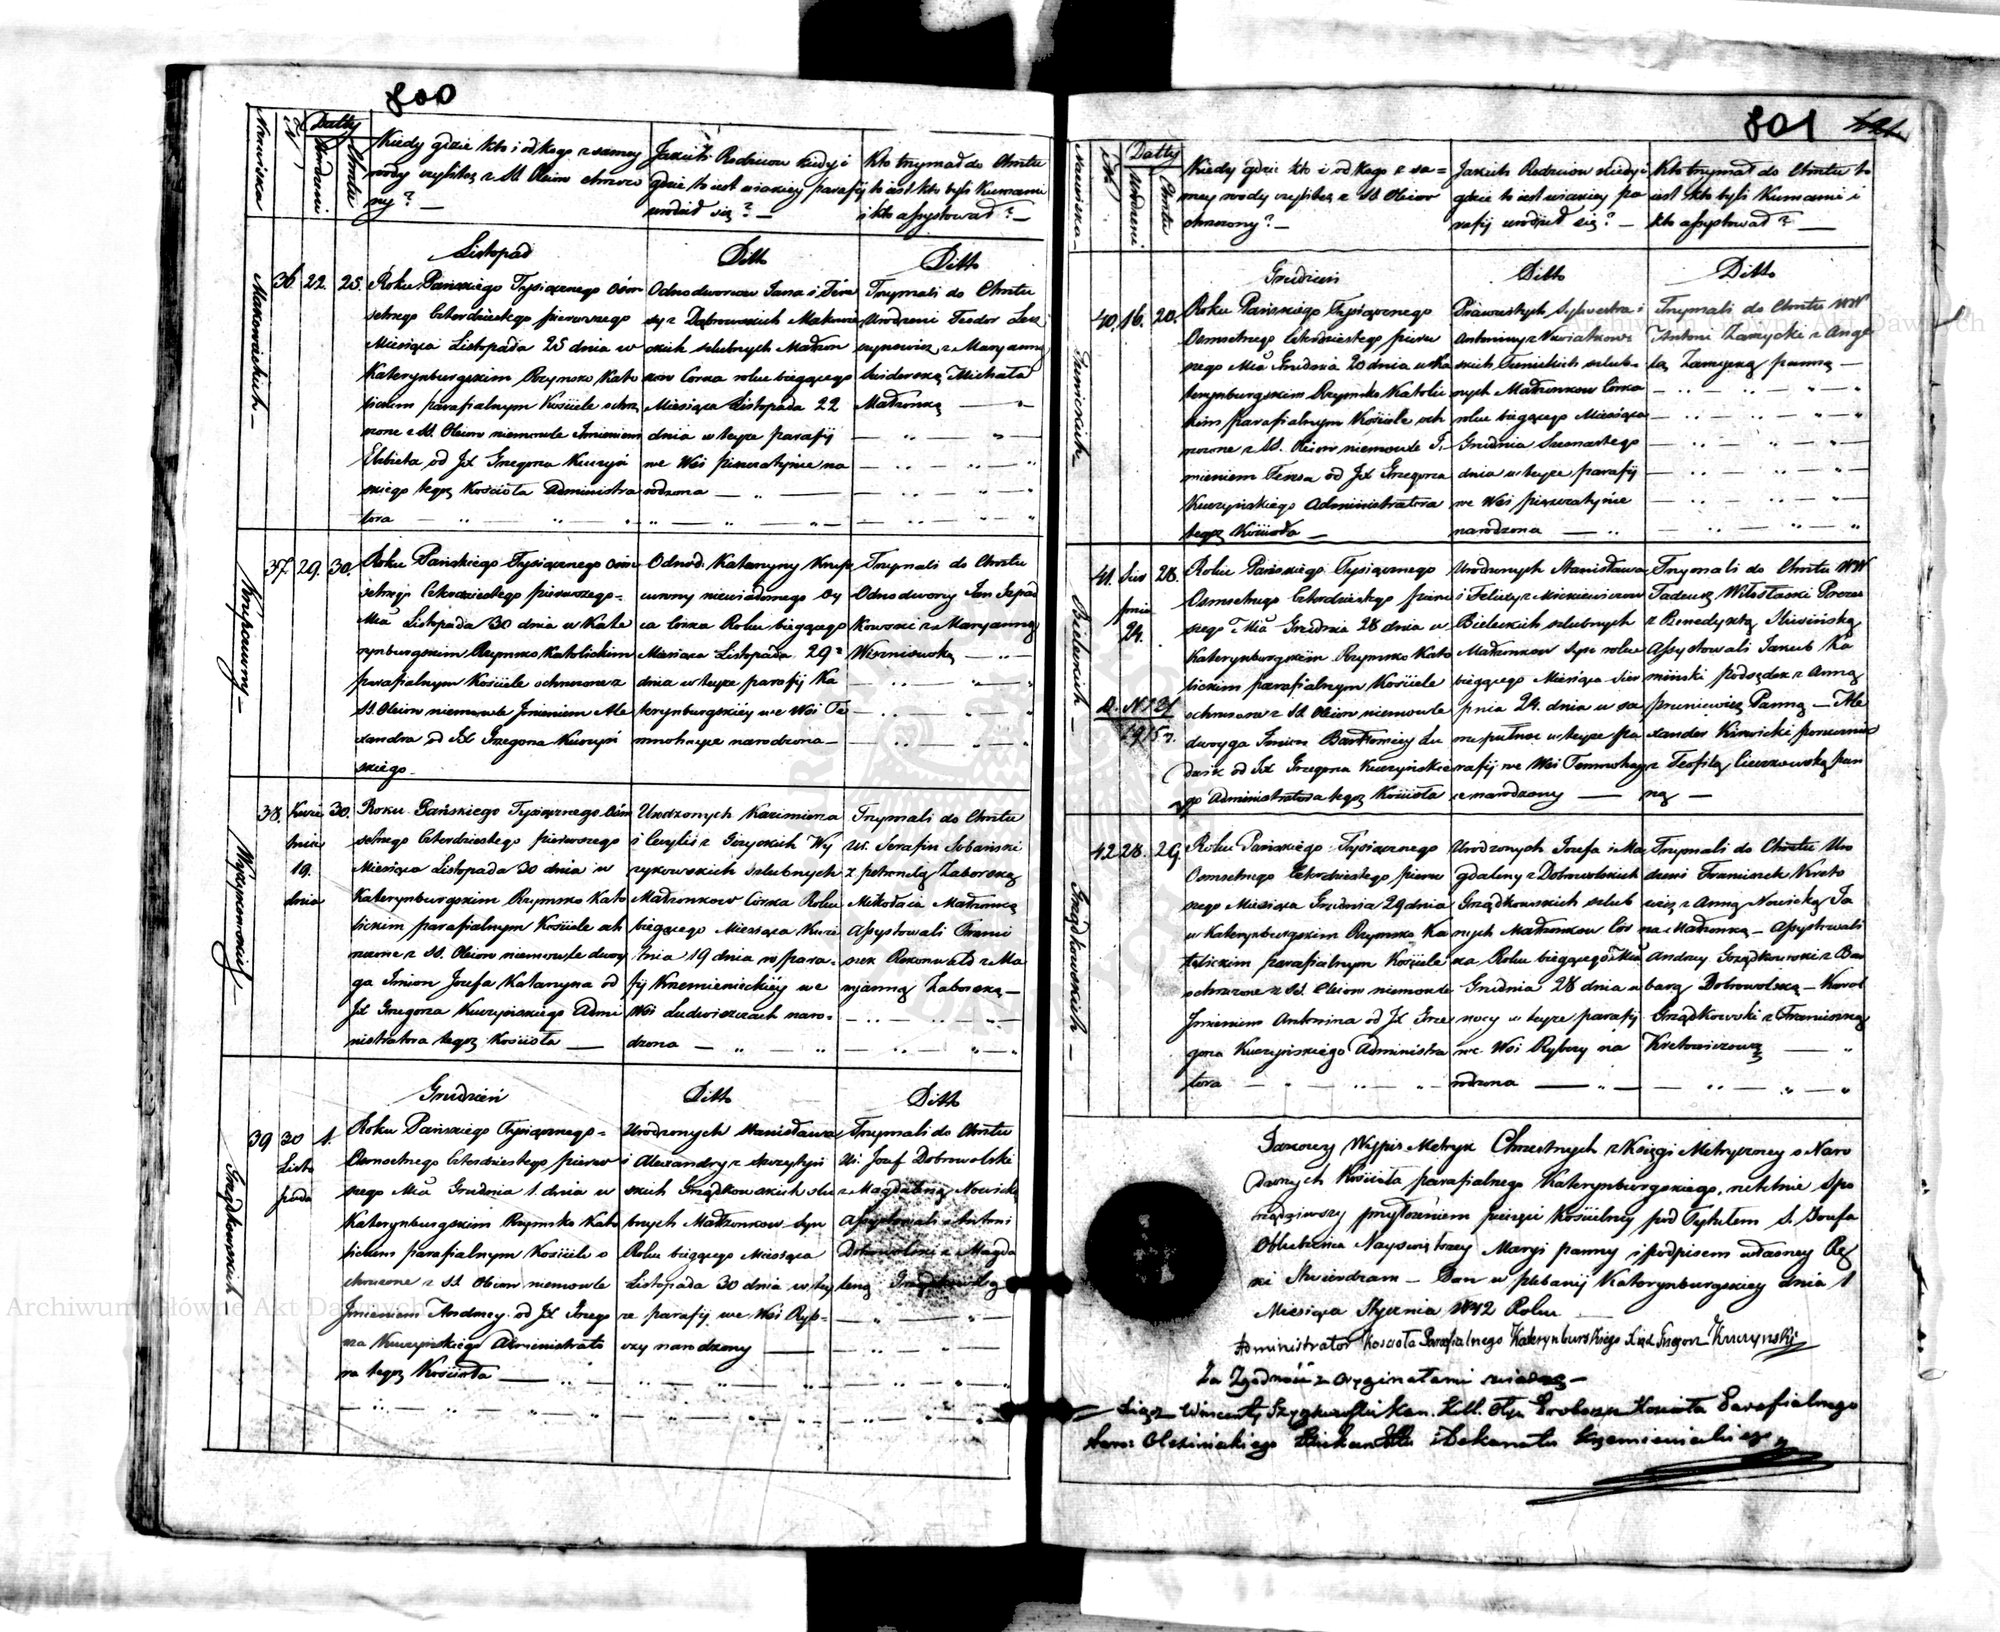 800
Nazwiska
N
Datty
Urodzeni
Chrztu
Kiedy gdzie kto i od kogo z samey
wody czyli też z SS. Oleiow chrzczo
ny? —
Jakich Rodzicow kiedy i
gdzie to iest w iakiey parafij
urodził się? —
Kto trzymał do Chrztu
to iest kto byli Kumami
i kto assystował? —
Listopad
Ditto
Ditto
Makowieckich —
36
22.
25.
Roku Pańskiego Tysiącznego Ośm
setnego Czterdziestego pierwszego
Miesiąca Listopada 25 dnia w
Katerynburgskim Rzymsko Kato
lickim parafialnym Kościele ochrz
czone z SS. Oleiow niemowle Imieniem
Elżbieta od JX Grzegorza Kuczyń
skiego tegoż Kościoła Administra
tora
Odnodworcow Jana i Tere
sy z Dąbrowskich Makowie
ckich szlubnych Małżon
kow Corka roku biegącego
Miesiąca Listopada 22
dnia w teyże parafij
we Wsi pieszczatyńce na
rodzona
Trzymali do Chrztu
Urodzeni Teodor Lesz
czynowicz z Maryanną
Michała
Małżonką
Krupcunny —
37.
29.
30.
Roku Pańskiego Tysiącznego Ośm
setnego Czterdziestego pierwszego
Mca Listopada 30 dnia w Kate
rynburgskim Rzymsko Katolickim
parafialnym Kościele ochrzczone z
SS. Oleiow niemowle Imieniem Ale
xandra od JX Grzegorza Kuczyń
skiego
Odnod. Katarzyny Krup
cunny niewiadomego Oy
ca Corka Roku biegącego
Miesiąca Listopada 29
dnia w teyże parafij Ka
terynburgskiey we Wsi Te
mnohayce narodzona —
Trzymali do Chrztu
Odnodworcy Jan Szpad
kowski z Maryanną
Wiszniowską
Wyrzykowskiey —
38.
Kwie
tnia
19.
dnia
30.
Roku Pańskiego Tysiącznego Ośm
setnego Czterdziestego pierwszego
Miesiąca Listopada 30 dnia w
Katerynburgskim Rzymsko Kato
lickim parafialnym Kościele och
rzczone z SS. Oleiow niemowle dwoy
ga Imion Jozefa Katarzyna od
JX Grzegorza Kuczyńskiego Admi
nistratora tegoż Kościoła
Urodzonych Kazimierza
i Cecylij z Giżyckich Wy
rzykowskich szlubnych
Małżonkow Corka Roku
biegącego Miesiąca Kwie
tnia 19 dnia w para-
fij Krzemienieckiey we
Wsi Ludwiszczach naro-
dzona
Trzymali do Chrztu
Ur. Serafin Sobański
z petronelą Zaborską
Mikołaia Małżonką
Assystowali Franci
szek Rokonwałd z Ma
ryanną Zaborską —
Grudzień
Ditto
Ditto
Grządkowskich
39
30
Listo
pada
1.
Roku Pańskiego Tysiącznego
Osmsetnego Czterdziestego pierw
szego Mca Grudnia 1. dnia w
Katerynburgskim Rzymsko Kato
lickim parafialnym Kościele o
chrzczone z SS. Oleiow niemowle
Imieniem Andrzey od JX Grzego
rza Kuczyńskiego Administrato
ra tegoż Kościoła
Urodzonych Stanisława
i Alexandry z Skrzetyń
skich Grządkowskich szlu
bnych Małżonkow Syn
Roku biegącego Miesiąca
Listopada 30 dnia w tey
że parafij we Wsi Ryb-
czy narodzony
Trzymali do Chrztu
Ur. Jozef Dobrowolski
z Magdaleną Nowicką
Assystowali Antoni
Dobrowolski z Magda
leną Grządkowską
801
Nazwiska —
Datty
Urodzeni
Chrztu
Kiedy gdzie kto i od kogo z sa-
mey wody czyli też z SS Oleiow
chrzczony? —
Jakich Rodzicow kiedy i
gdzie to iest w iakiey pa
rafij urodził się? —
Kto trzymał do Chrztu to
iest kto byli Kumami i
kto assystował?
Grudzień
Ditto
Ditto
40.
16.
20.
Roku Pańskiego Tysiącznego
Osmsetnego Czterdziestego pierw
szego Mca Grudnia 20 dnia w Ka
terynburgskim Rzymsko Katolic
kim parafialnym Kościele och
rzczone z SS. Oleiow niemowle I-
mieniem Teresa od JX Grzegorza
Kuczyńskiego Administratora
tegoż Kościoła —
Prawnitych Sylwestra i
Antoniny z Kwiatkow
skich szlub-
nych Małżonkow Corka
roku biegącego Miesiąca
Grudnia Szesnastego
dnia w teyże parafij
we Wsi pieszczatyńce
narodzona
Trzymali do Chrztu WW
Antoni Zamycki z Ange
lą Zamycką panną —
Bieleckich —
41.
Sier
pnia
24.
28.
Roku Pańskiego Tysiącznego
Osmsetnego Czterdziestego pierw
szego Mca Grudnia 28 dnia w
Katerynburgskim Rzymsko Kato
lickim parafialnym Kościele
ochrzczone z SS. Oleiow niemowle
dwoyga Imion Bartłomiey Lu
dwik od JX Grzegorza Kuczyńskie
go Administratora tegoż Kościoła
Urodzonych Stanisława
i Felicyi z Mickiewiczow
Bieleckich szlubnych
Małżonkow Syn roku
biegącego Miesiąca Sier
pnia 24. dnia w sa
me pułnoc w teyże pa
rafij we Wsi Temnohay
ce narodzony
Trzymali do Chrztu WW
Tadeusz Witosławski Prezes
z Benedyktą Iliwińską
Assystowali Jakub Ka
miński podsędek z Anną
Panną — Ale
xander Kirwicki porucznik
z Teofilą Cieszkowską pan
ną —
Grządkowskich —
42
28.
29.
Roku Pańskiego Tysiącznego
Osmsetnego Czterdziestego pierw
szego Miesiąca Grudnia 29 dnia
w Katerynburgskim Rzymsko Ka
tolickim parafialnym Kościele
ochrzczone z SS. Oleiow niemowle
Imieniem Antonina od JX Grze
gorza Kuczyńskiego Administra
tora
Urodzonych Jozefa i Ma
gdaleny z Dobrowolskich
Grządkowskich szlub
nych Małżonkow Cor
ka Roku biegącego Mca
Grudnia 28 dnia w
nocy w teyże parafij
we Wsi Rybczy na
rodzona
Trzymali do Chrztu Uro
dzeni Franciszek Kreto
wicz z Anną Nowicką Ja
na Małżonką — Assystowali
Andrzy Grządkowski z Bar
barą Dobrowolską — Karol
Grządkowski z Franciszką
Kretowiczową
Takowy Wypis Metryk Chrzestnych z Księgi Metryczney o Naro
dzonych Kościoła parafialnego Katerynburgskiego, rzetelnie spo
rządziwszy przyłożeniem pieczęci Kościelney pod Tytułem S. Jozefa
Oblubieńca Nayświętszey Maryi panny i podpisem własney Rę
ki stwierdzam — Dan w plebanij Katerynburgskiey dnia 1
Miesiąca Stycznia 1842 Roku
Administrator Kościoła Parafialnego Katerynburskiego Xiądz Grzegorz Kuczynski
Za Zgodność z Oryginałami
Xiądz Wincenty Kan. Proboszcz Kościoła Parafialnego
Olexinieckiego Dekanatu Krzemienieckiego
Archiwum Główne Akt Dawnych
Archiwum Główne Akt Dawnych